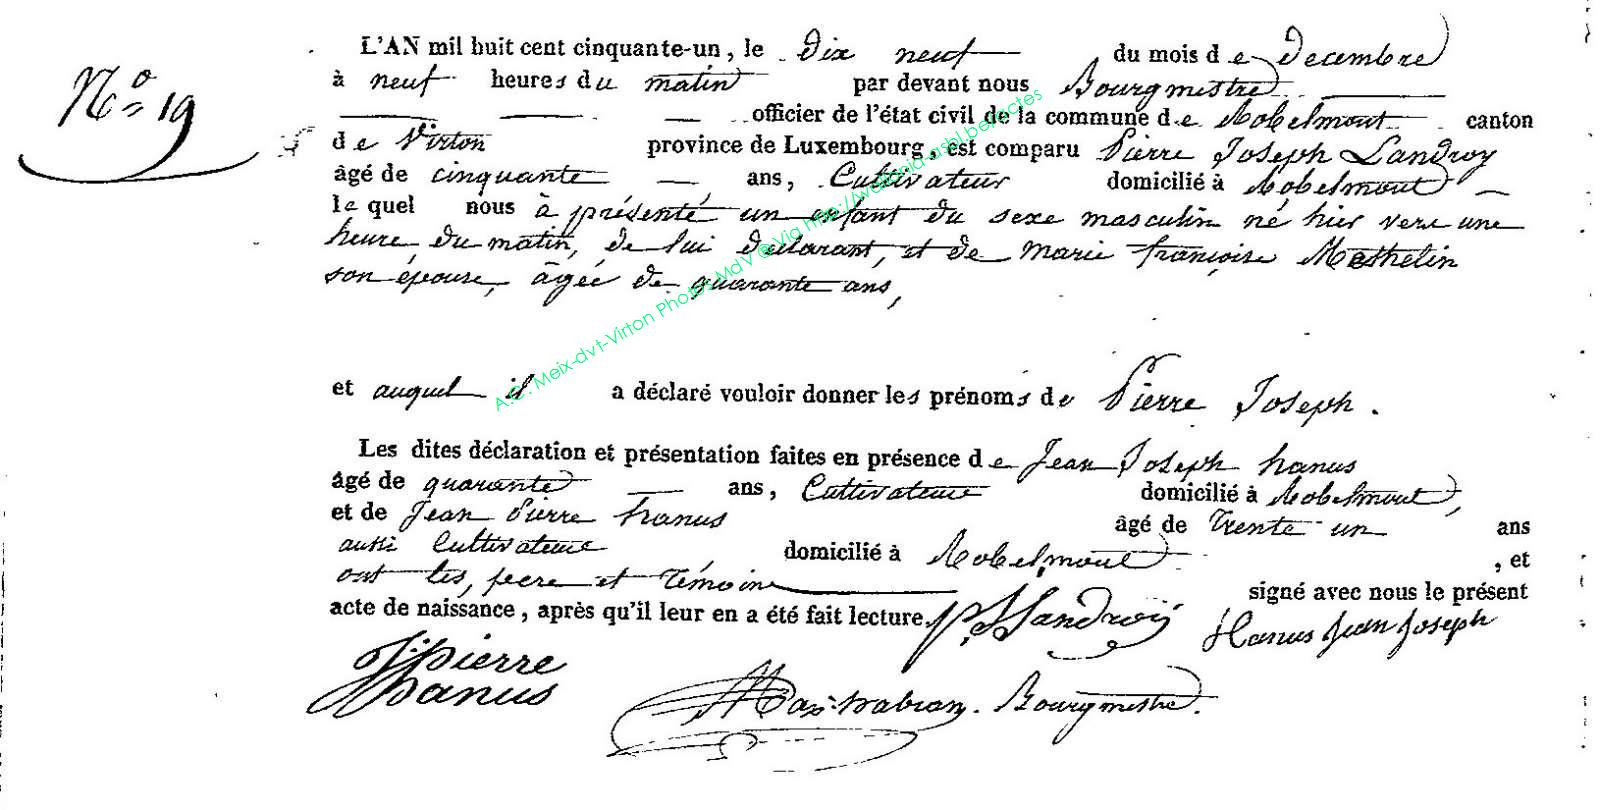 N° 19
L'AN mil huit cent cinquante-un, le dix neuf du mois de decembre
à neuf heures du matin par devant nous Bourgmestre
officier de l'état civil de la commune de Robelmont canton
de Virton province de Luxembourg, est comparu Pierre Joseph Landroy
âgé de cinquante ans, Cultivateur domicilié à Robelmont
le quel nous à présenté un enfant du sexe masculin né hier vers une
heure du matin, de lui declarant, et de marie françoise Mathelin
son épouse, âgée de quarante ans,
et auquel il a déclaré vouloir donner les prénoms de Pierre Joseph.
Les dites déclaration et présentation faites en présence de Jean Joseph hanus
âgé de quarante ans, Cultivateur domicilié à Robelmont,
et de Jean Pierre hanus âgé de Trente un ans
aussi Cultivateur domicilié à Robelmont, et
ont les, pere et témoins signé avec nous le présent
acte de naissance, après qu'il leur en a été fait lecture. P. J Landroy Hanus Jean Joseph
J: pierre
hanus
Bourgmestre.
A.C. Meix-dvt-Virton Photos MdV @ Via http://wallonia-asbl.be/actes